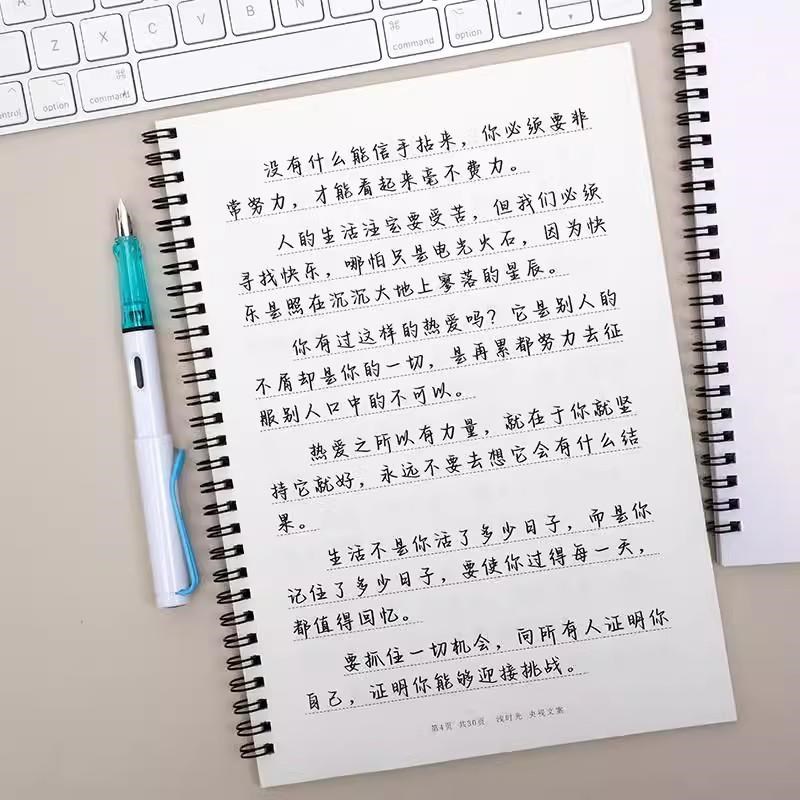 Z X C V B N M
command option
control option command
没有什么能信手拈来，你必须要非
常努力，才能看起来毫不费力。
人的生活注定要受苦，但我们必须
寻找快乐，哪怕只是电光火石，因为快
乐是照在沉沉大地上寥落的星辰。
你有过这样的热爱吗？它是别人的
不屑却是你的一切，是再累都努力去征
服别人口中的不可以。
热爱之所以有力量，就在于你就坚
持它就好，永远不要去想它会有什么结
果。
生活不是你活了多少日子，而是你
记住了多少日子，要使你过得每一天，
都值得回忆。
要抓住一切机会，向所有人证明你
自己，证明你能够迎接挑战。
第4页 共30页 浅时光 央视文案